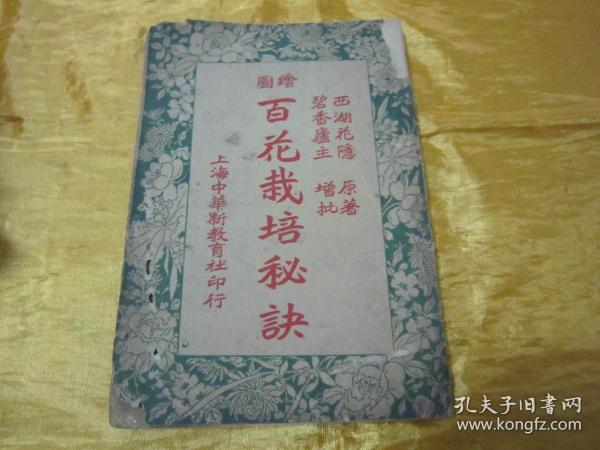 西湖花隱 原著
碧香廬主 增批
繪圖
百花栽培秘訣
上海中華新教育社印行
孔夫子旧书网
www.kongfz.com